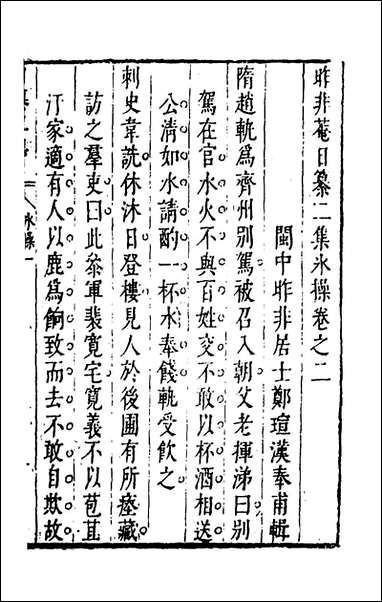 昨非菴日纂二集氷操卷之二
閩中昨非居士鄭瑄漢奉甫輯
隋趙軌爲齊州别駕被召入朝父老揮涕曰别
駕在官水火不與百姓交不敢以杯酒相送
公清如水請酌一杯水奉餞軌受飮之
刺史韋詵休沐日登樓見人於後圃有所瘞藏
訪之羣吏曰此叅軍裴寛宅寛義不以苞苴
汙家適有人以鹿爲餉致而去不敢自欺故
氷操一